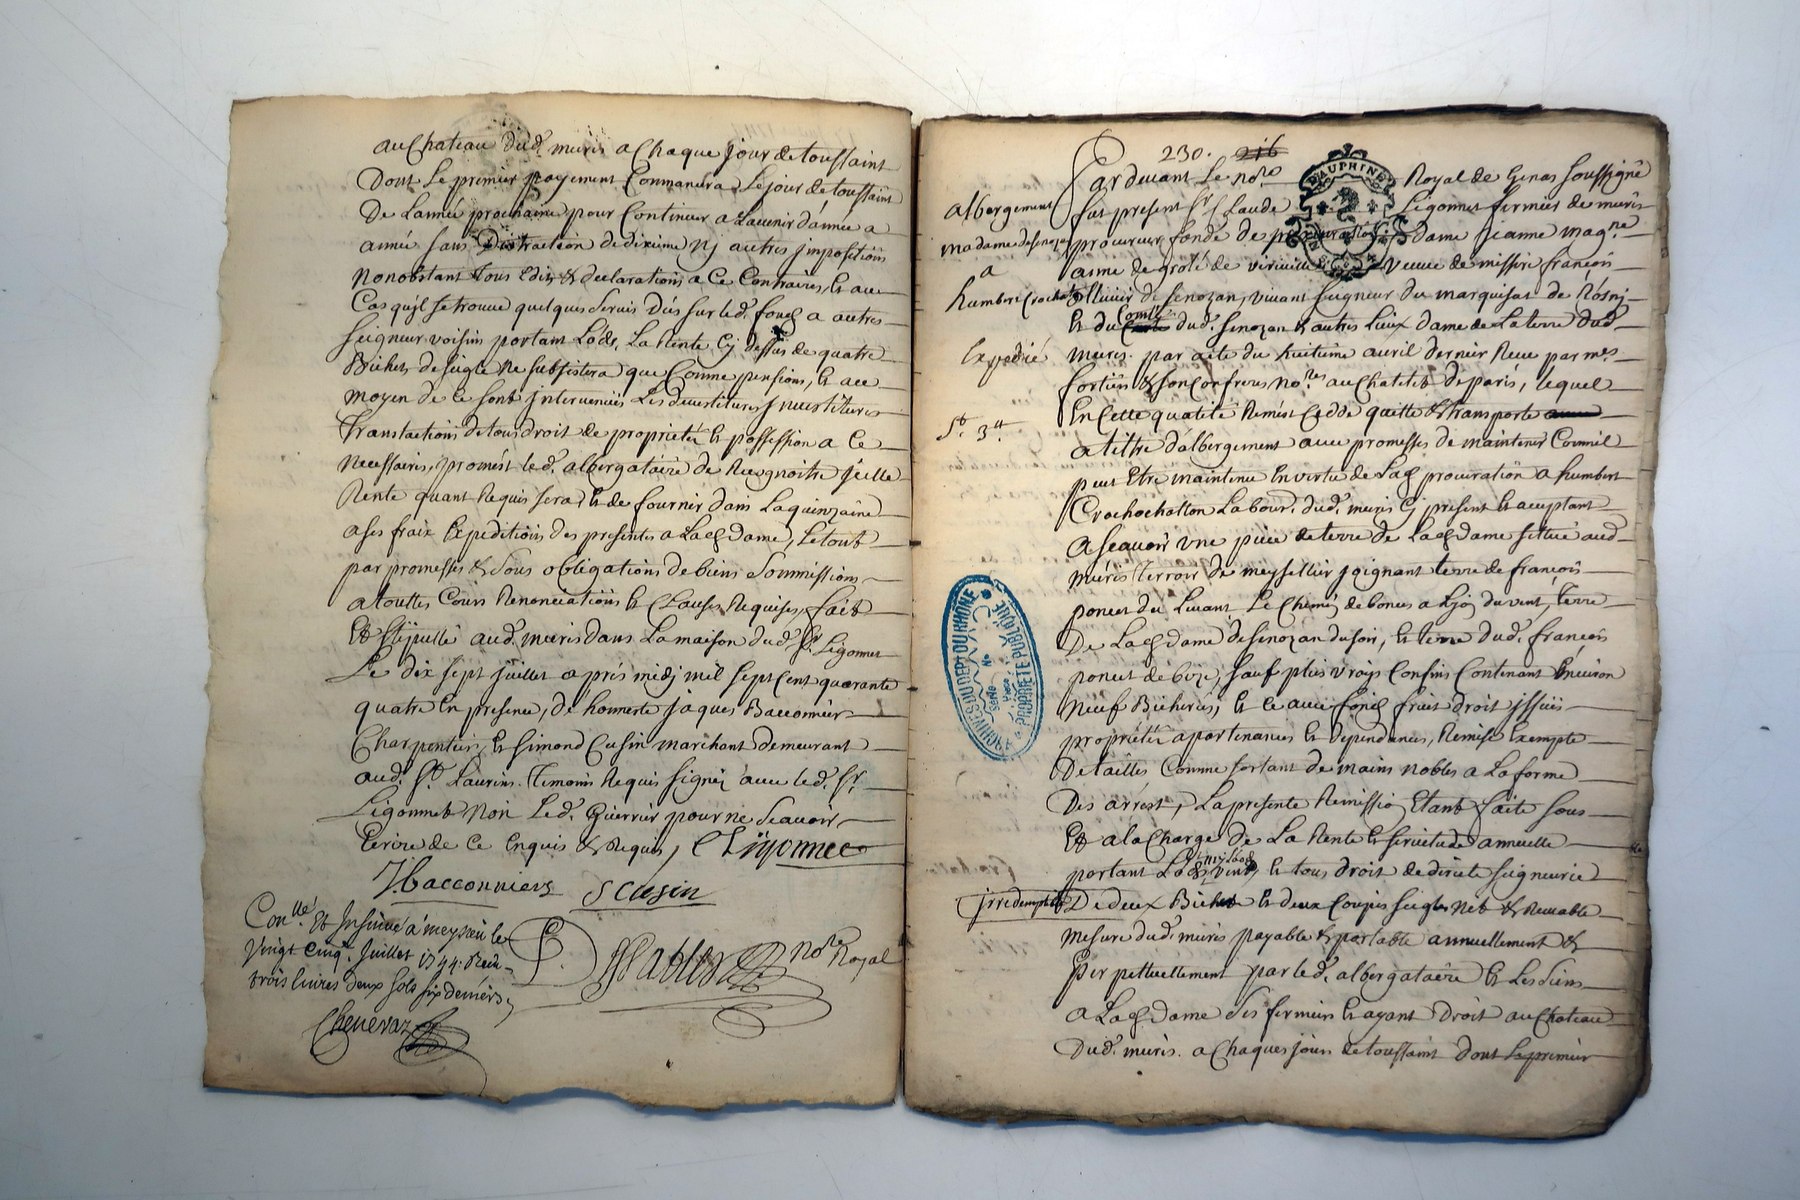 au Chateau dud. muris a Chaque jour de toussaint
Dont Le premier payement Commancera Le jour de toussaint
De Lannée prochaine pour Continuer a Lavenir dannée a
année sans Distraction de dixieme nj autres jmpositions
nonobstant tous Edits & declarations a Ce Contraires, Et au
Cas quil se trouve quelques servis Dûs sur led. fonds a autres
seigneur voisin portant Lods, La Rente Cj dessus de quatre
Bichets de seigle ne subsistera que Comme pension, Et au
moyen de Ce sont jntervenües Les devestitures jnvestitures
translations de tous droit de proprieté Et possession a Ce
necessaires, promést led. albergataire de Recognoitre jcelle
Rente quant Requis sera, Et de fournir dans La quinzaine
a ses fraix Expeditions des presentes a Lad. Dame, Le tout
par promesses & sous obligations de biens Soumissions
a touttes Cours Renonciations Et Clauses Requises, fait
Et stipullé aud. muris dans La maison dud. Sr. Ligonnet
Le dix sept juillet a prés midj mil sept Cent quarante
quatre En presence, de honneste jaques Bacconnier
Charpentier, Et Simond Cusin marchant demeurant
aud. St. Laurens. temoins Requis signéz avec led. Sr.
Ligonnet non Led. Guerrier pour ne Scavoir
Ecrire de Ce Enquis & Requis, C Ligonnet
J Bacconnier S Cusin
Con.lle Et Insinué á meysieu le
vingt Cinq. Juillet 1744. Reçu
trois livres deux sols six deniers,
nore Royal
Chenevaz
230. 216
DAUPHINE
Par devant Le nore Royal de Genas soussigné
fut present Sr. Claude Ligonnet fermier de muris
procureur fondé de dame jeanne magne
anne de grolé de viriville veuve de missire françois
Ollivier de Senozan, vivant seigneur du marquisat de Rosnj
Et du Comté dud. Senozan & autres Lieux dame de La terre dud.
muris. par acte du huitieme avril dernier Receu par mes
fortier & son Confrere nores au Chatelet de paris, Lequel
En Cette qualité Remést Cedde quitte & transporte
a titre dalbergement avec promesses de maintenir Comme il
peut Etre maintenu En vertu de Lad. procuration a humbert
Crochochatton Labour. dud. muris Cj present Et acceptant
a Scavoir une piece de terre de Lad. dame scittuée aud.
muris terroir de meysellier joignant terre de françois
poncet du Levant Le Chemin de bonus a du vent, terre
De Lad. dame de Senozan du soir, Et terre dud. françois
poncet de bize, sauf plus vrays Confins Contenant Environ
neuf Bicherées, Et ce avec fonds fruit droit jssües
proprietés apartenances Et dependances, Remise Exempte
De tailles Comme sortant de mains nobles a La forme
Des arrest, La presente Remission Etant faite sous
Et a la Charge de La Rente Et servitude annuelle
portant Lods mj Lods & vente, Et tous droit de directe seigneurie
De deux Bichet Et deux Coupes seigle net & Recevable
mesure dud. muris payable & portable annuellement &
perpetuellement par led. albergataire Et Les Siens
a Lad. Dame Ses fermiers Et ayant Droit au Chateau
Dud. muris. a Chaques jours de toussaint dont Le premier
albergement
madame de Senozan
a
humbert Crochat
Expedié
St. 3tt
jrredemptible
ARCHIVES DU DEPT DU RHONE
PROPRIETE PUBLIQUE
Série
No